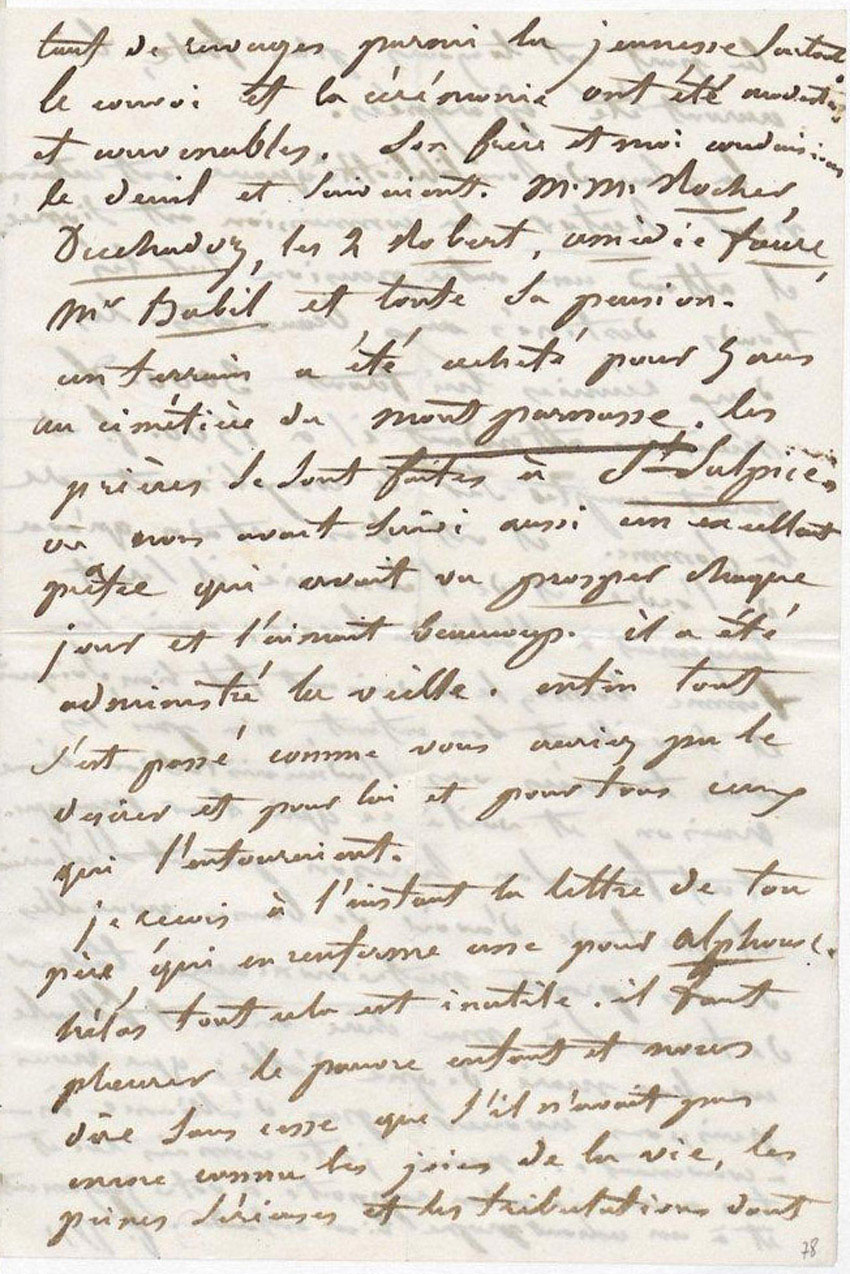 tant de ravages parmi la jeunesse surtout
le convoi et la cérémonie ont été modestes
et convenables. Son frère et moi conduisions
le deuil et suivaient. M.M. Rocher,
Duchadoz, les 2 Robert, amédée faure,
Mr Babil et toute sa pension.
un terrain a été acheté pour 5 ans
au cimétière du mont parnasse. les
prières se sont faites à St Sulpice
où nous avait suivi aussi un excellent
prêtre qui avait vu prosper chaque
jour et l'aimait beaucoup. il a été
administré la vieille. enfin tout
s'est passé comme vous auriez pu le
désirer et pour lui et pour tous ceux
qui l'entouraient.
je reçois à l'instant la lettre de ton
père qui en renferme une pour alphonse.
hélas tout cela est inutile. il faut
pleurer le pauvre enfant et nous
dire sans cesse que s'il n'avait pas
encore connu les joies de la vie, les
peines sérieuses et les tribulations dont
78